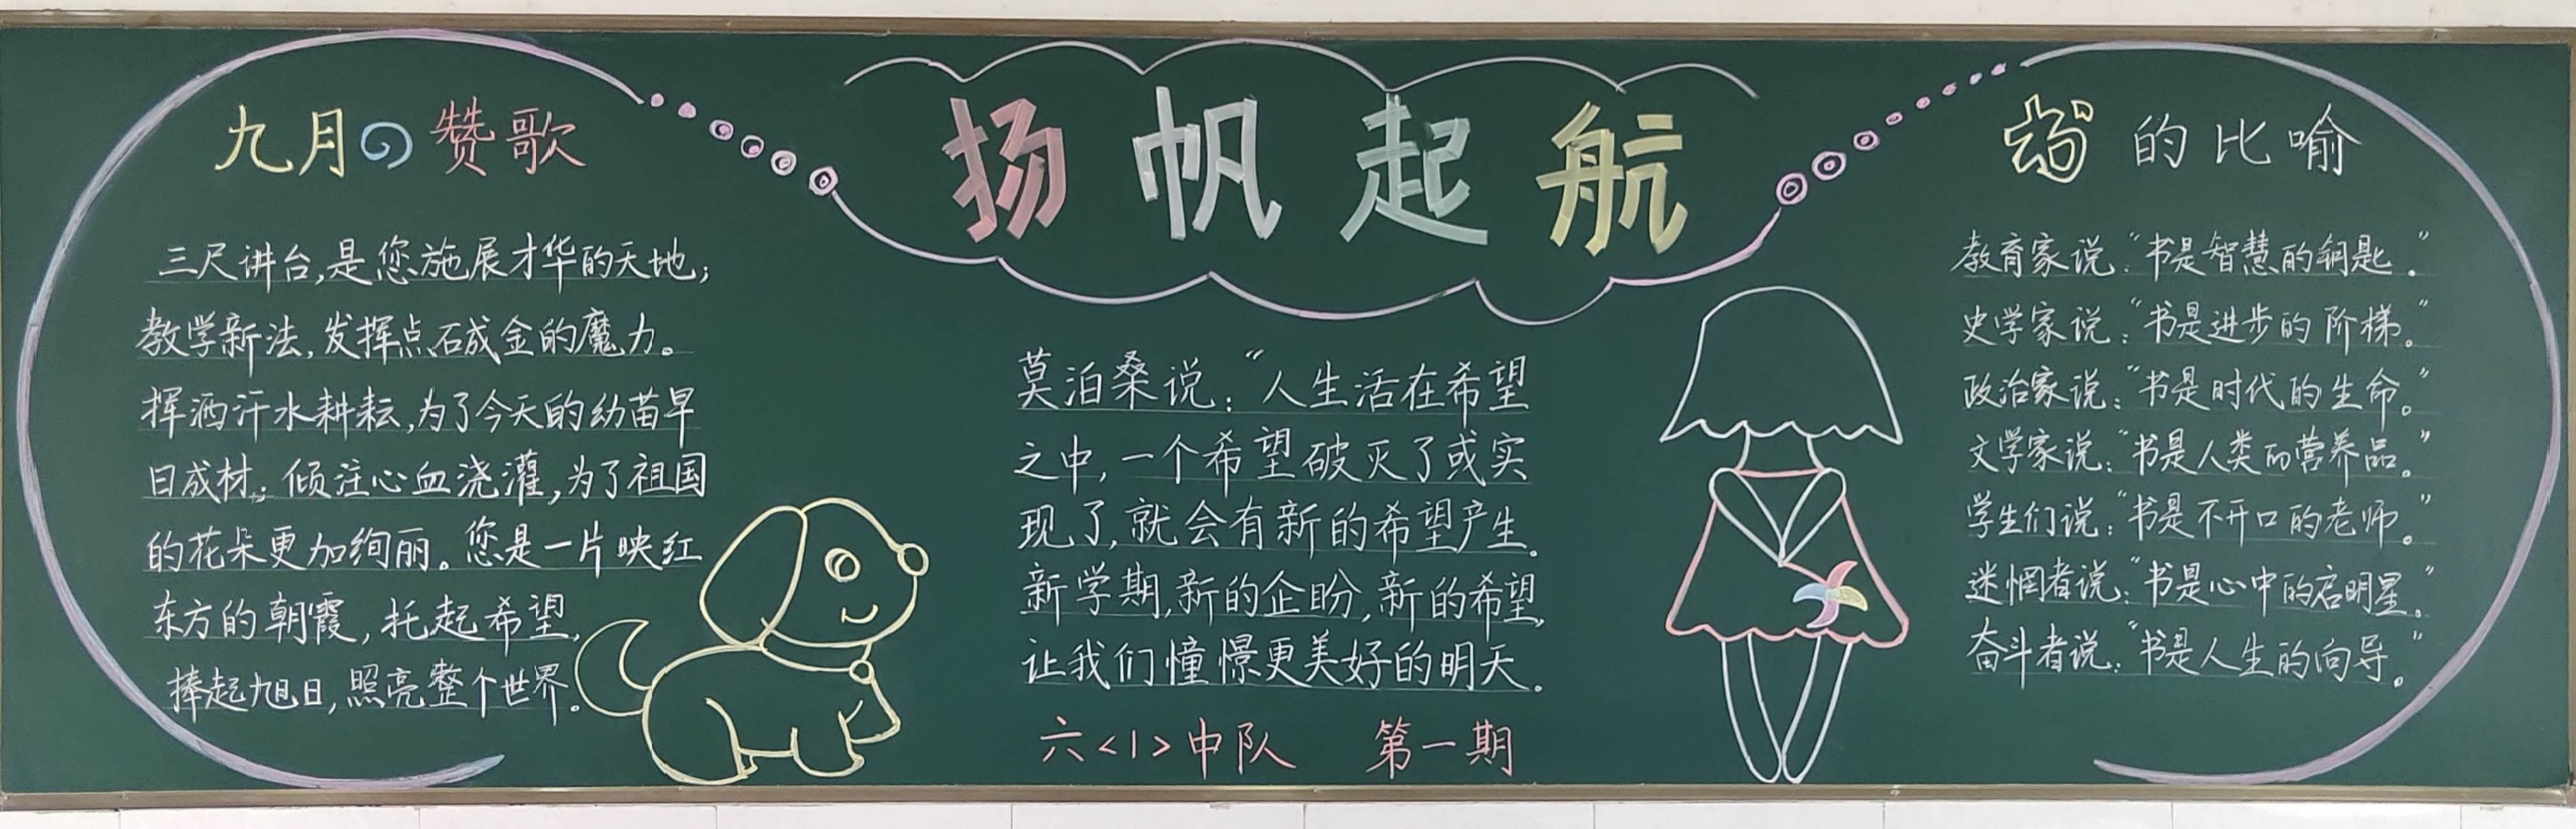 九月の赞歌
三尺讲台,是您施展才华的天地;
教学新法,发挥点石成金的魔力。
挥洒汗水耕耘,为了今天的幼苗早
日成材;倾注心血浇灌,为了祖国
的花朵更加绚丽。您是一片映红
东方的朝霞,托起希望,
捧起旭日,照亮整个世界。
扬帆起航
莫泊桑说:“人生活在希望
之中,一个希望破灭了或实
现了,就会有新的希望产生。
新学期,新的企盼,新的希望,
让我们憧憬更美好的明天。
六<1>中队 第一期
书的比喻
教育家说:“书是智慧的钥匙。”
史学家说:“书是进步的阶梯。”
政治家说:“书是时代的生命。”
文学家说:“书是人类的营养品。”
学生们说:“书是不开口的老师。”
迷惘者说:“书是心中的启明星。”
奋斗者说:“书是人生的向导。”